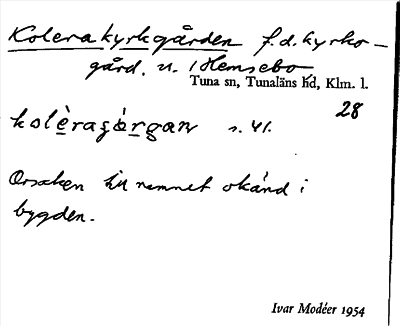 Kolerakyrkgården f.d. kyrko-
gård. n. Hemsebo
Tuna sn, Tunaläns hd, Klm. l.
28
kolèragàrgan s. 41.
Orsaken till namnet okänd i
bygden.
Ivar Modéer 1954